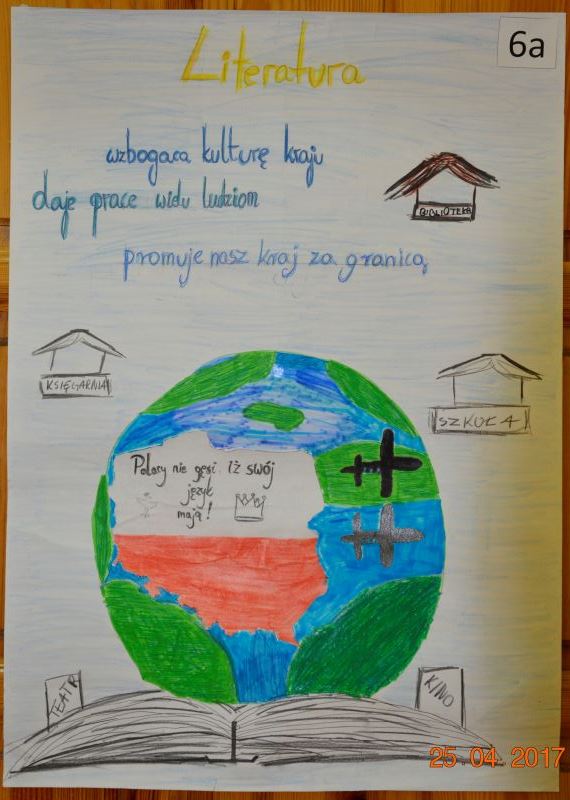 6a
Literatura
wzbogaca kulturę kraju
daje prace wielu ludziom
BIBLIOTEKA
promuje nasz kraj za granicą
KSIĘGARNIA
SZKOŁA
Polacy nie gęsi iż swój
język
mają!
TEATR
KINO
25.04.2017